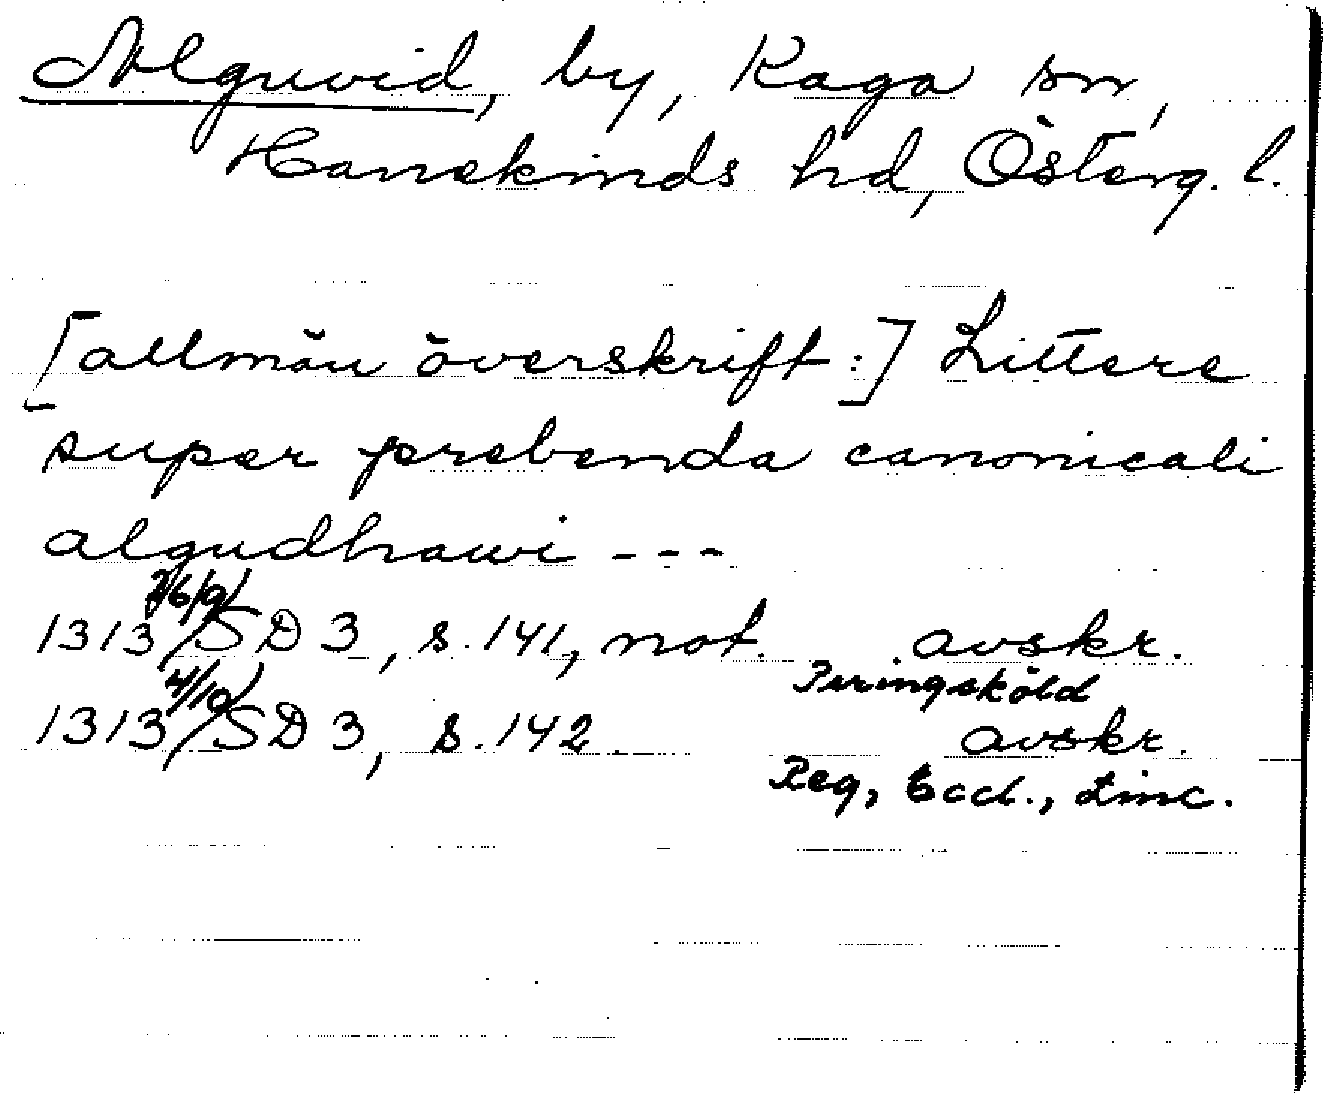 Alguvid, by, Kaga sn,
Hanekinds hd, Österg. l.
[allmän överskrift:] Littere
super prebenda canonicali
algudhawi ---
1313 26/9/ SD 3, s. 141, not. avskr.
Peringsköld
1313 4/10/ SD 3, s. 142. avskr.
Reg, Eccl., Linc.